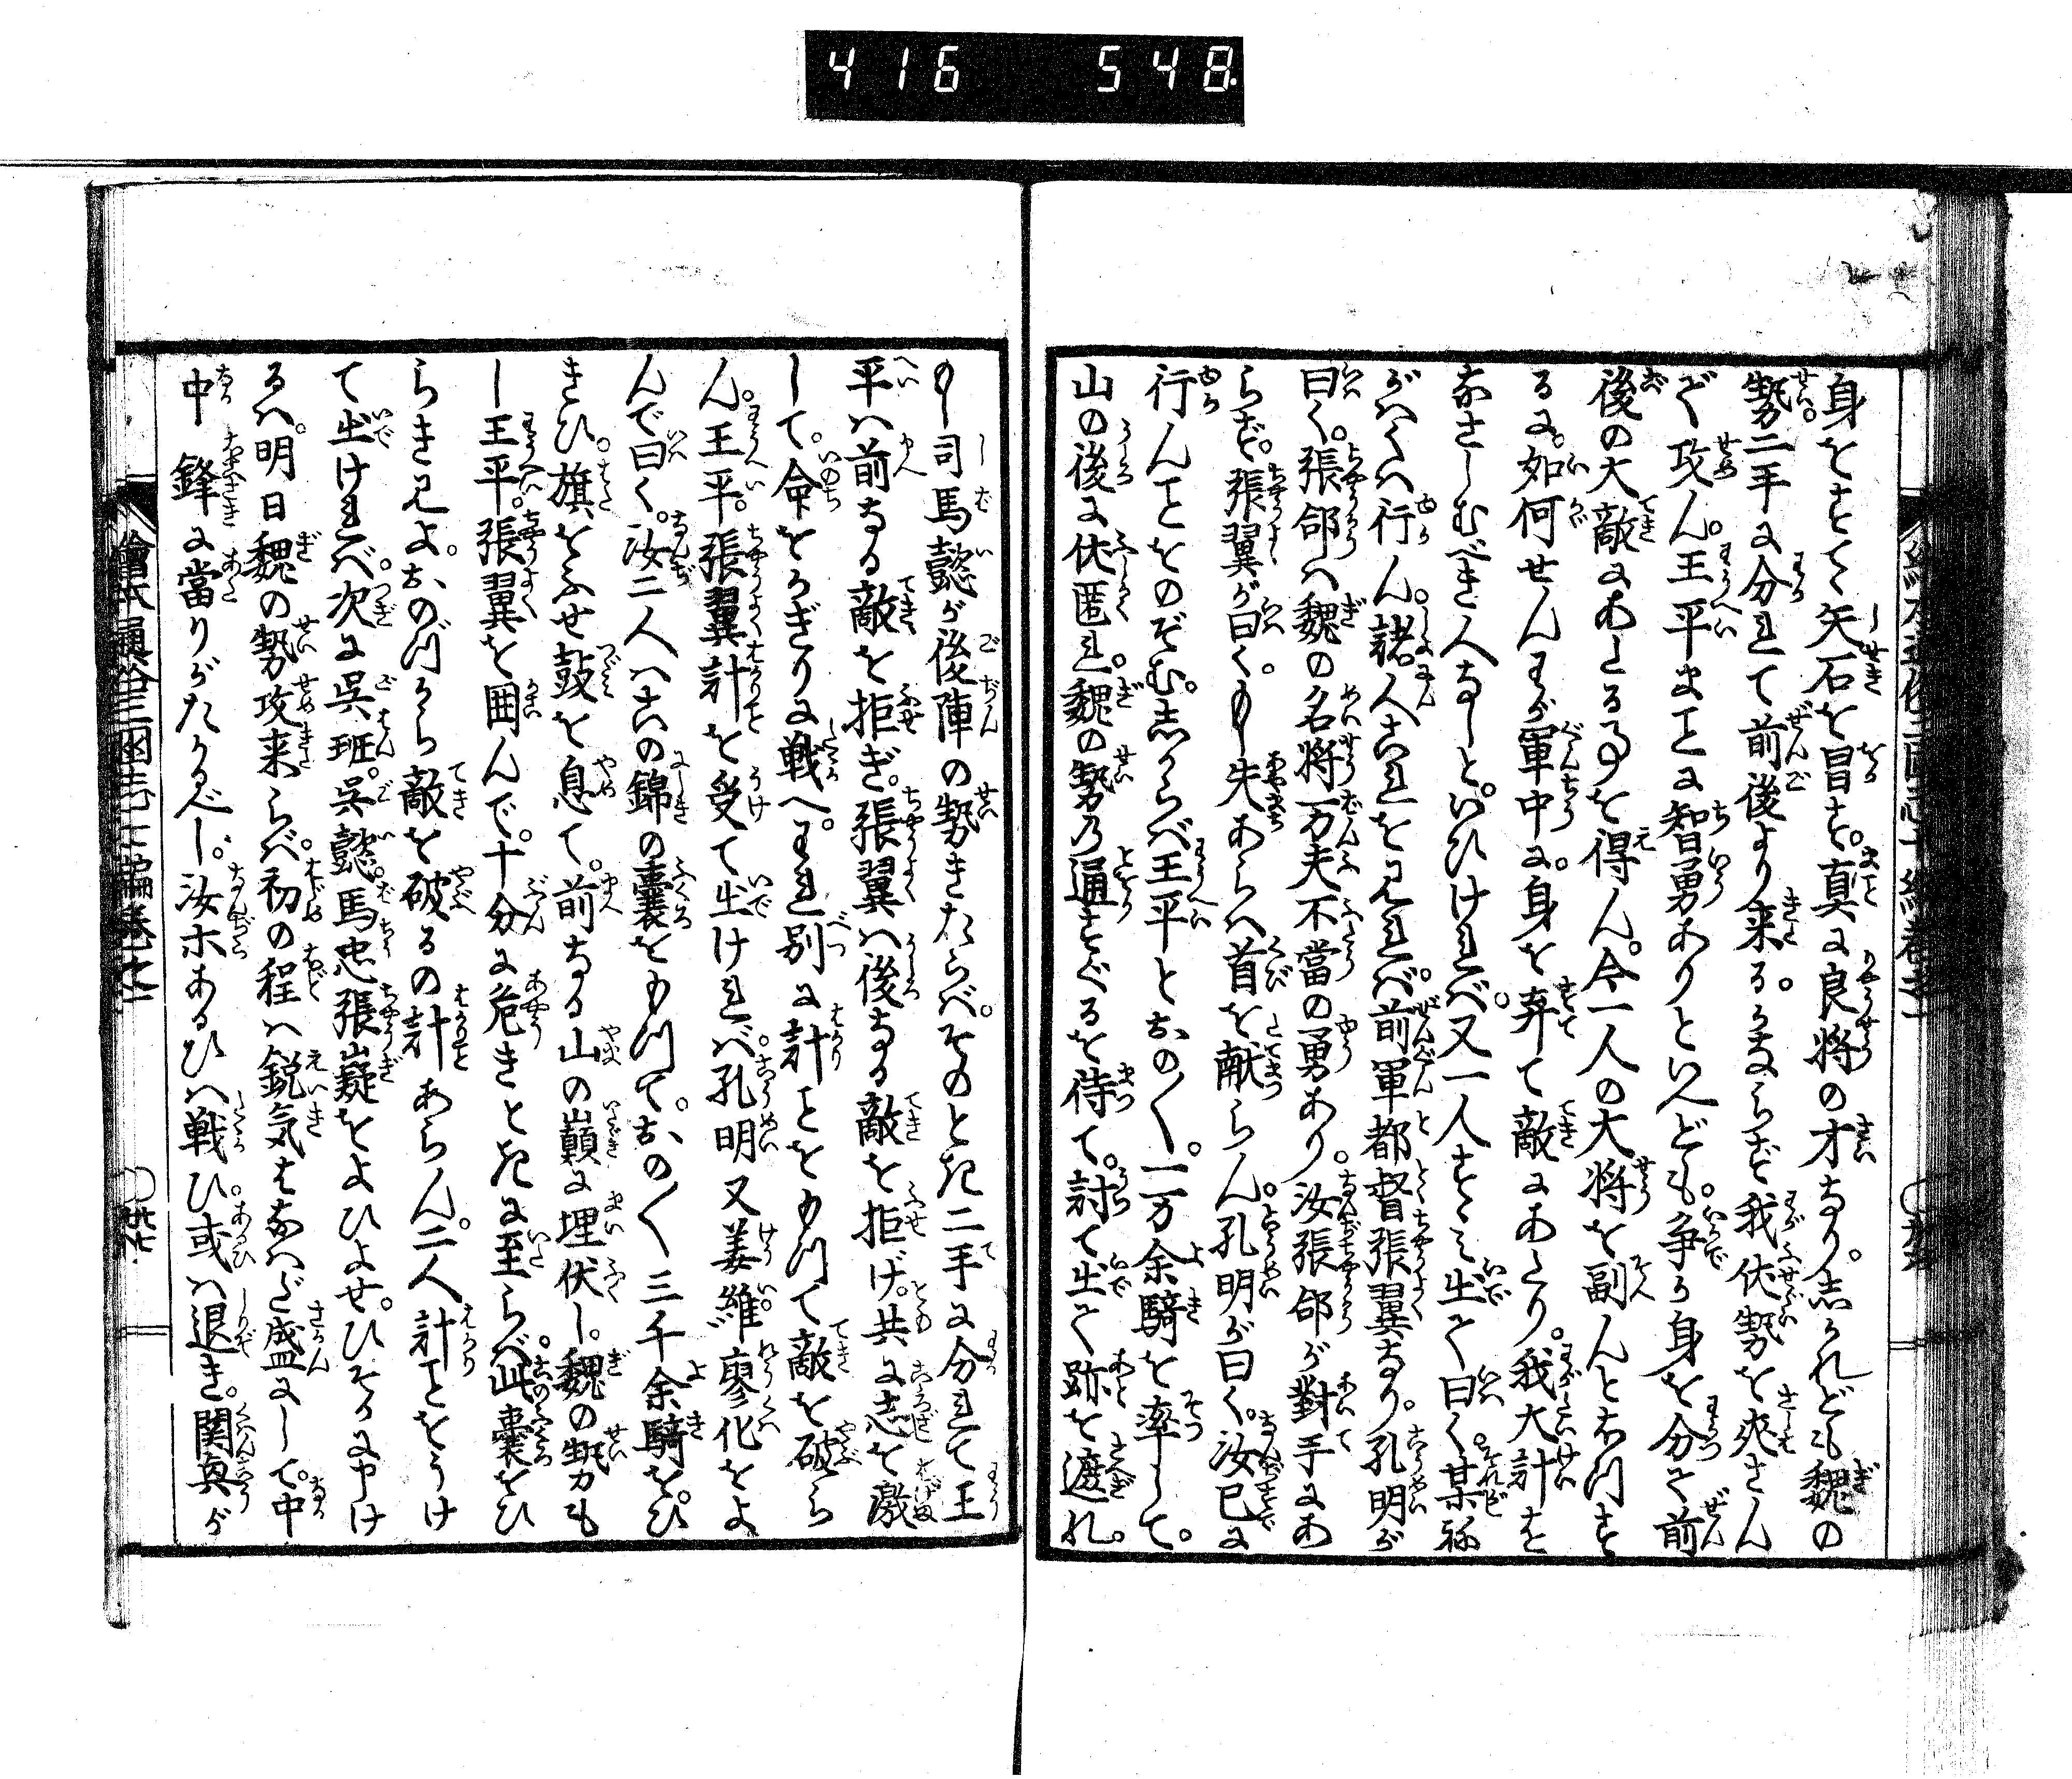 416 548
身をすてゝ矢石を冒す。真に良将の才なり。志かれども魏の
勢二手に分れて前後より来る。かならず我伏勢を夾さん
で攻ん。王平まことに智勇ありといへども。争か身を分て前
後の大敵にあたる事を得ん。今一人の大将を副んとおつす
るに。如何せんわが軍中に。身を弃て敵にあたり。我大計を
なさしむべき人なしと。いひければ。又一人すゝみ出て曰く。某祢
がハくハ行ん。諸人これを見れバ。前軍都督張翼なり。孔明が
曰く。張郃ハ魏の名将万夫不當の勇あり。汝張郃が對手にあ
らず。張翼が曰く。もし失あらハ首を献らん。孔明が曰く。汝已に
行んことをのぞむ。志からバ王平とおの〳〵。一万余騎を率して。
山の後に伏匿れ。魏の勢乃通すぐるを待て。討て出て跡を遮れ。
もし司馬懿が後陣の勢きたらバ。そのとき二手に分れて王
平ハ前なる敵を拒ぎ。張翼ハ後なる敵を拒げ。共に志を激
して。命をかぎりに戦へ。われ別に計ことをもつて敵を破ら
ん。王平。張翼計を受て出けれバ。孔明又姜維。廖化をよ
んで曰く。汝二人ハ此の錦の嚢をもつて。おの〳〵三千余騎をひ
きひ。旗をふせ鼓を息て。前なる山の巓に埋伏し。魏の勢も
し王平。張翼を囲んで。十分に危きときに至らバ。此嚢をひ
らき見よ。おのづから敵を破るの計あらん。二人計ことをうけ
て出けれバ。次に呉班。呉懿。馬忠張嶷をよひよせ。ひそかに申け
るハ。明日魏の勢攻来らバ。初の程ハ鋭気はなハだ盛にして。中
中鋒に當りがたかるべし。汝ホあるひハ戦ひ。或ハ退き。関興が
繪本通俗三国志七編巻之一